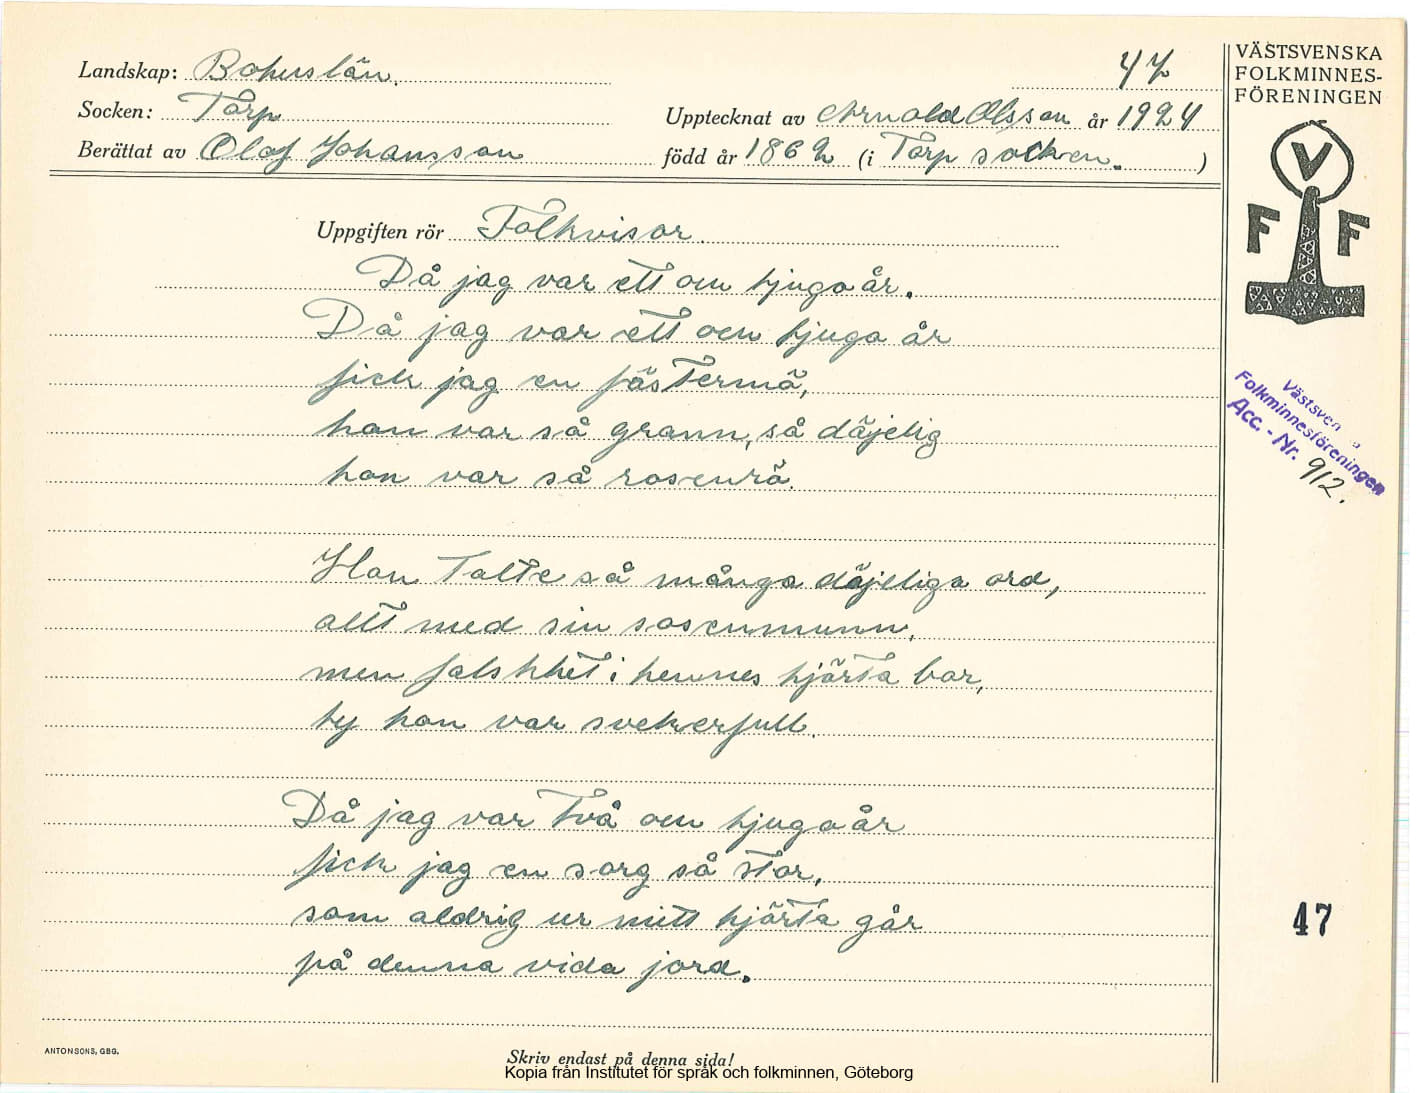 Landskap: Bohuslän.
47
VÄSTSVENSKA
FOLKMINNES-
FÖRENINGEN
Socken: Torp
Upptecknat av Arnold Olsson år 1924
Berättat av Olof Johansson
född år 1862 (i Torp socken.)
V
F F
Uppgiften rör Folkvisor.
Då jag var ett om tjugo år.
Då jag var ett om tjuga år
fick jag en fästermä,
hon var så grann, så däjelig
hon var så rosenrö.
Västsven a
Folkminnesföreningen
Acc.-Nr. 912.
Hon talte så många däjeliga ord,
allt med sin rosenmunn,
men falskhet i hennes hjärta bor,
ty hon var svekerfull.
Då jag var två om tjugo år
fick jag en sorg så stor,
som aldrig ur mitt hjärta går
på denna vida jord.
47
ANTONSONS, GBG.
Skriv endast på denna sida!
Kopia från Institutet för språk och folkminnen, Göteborg